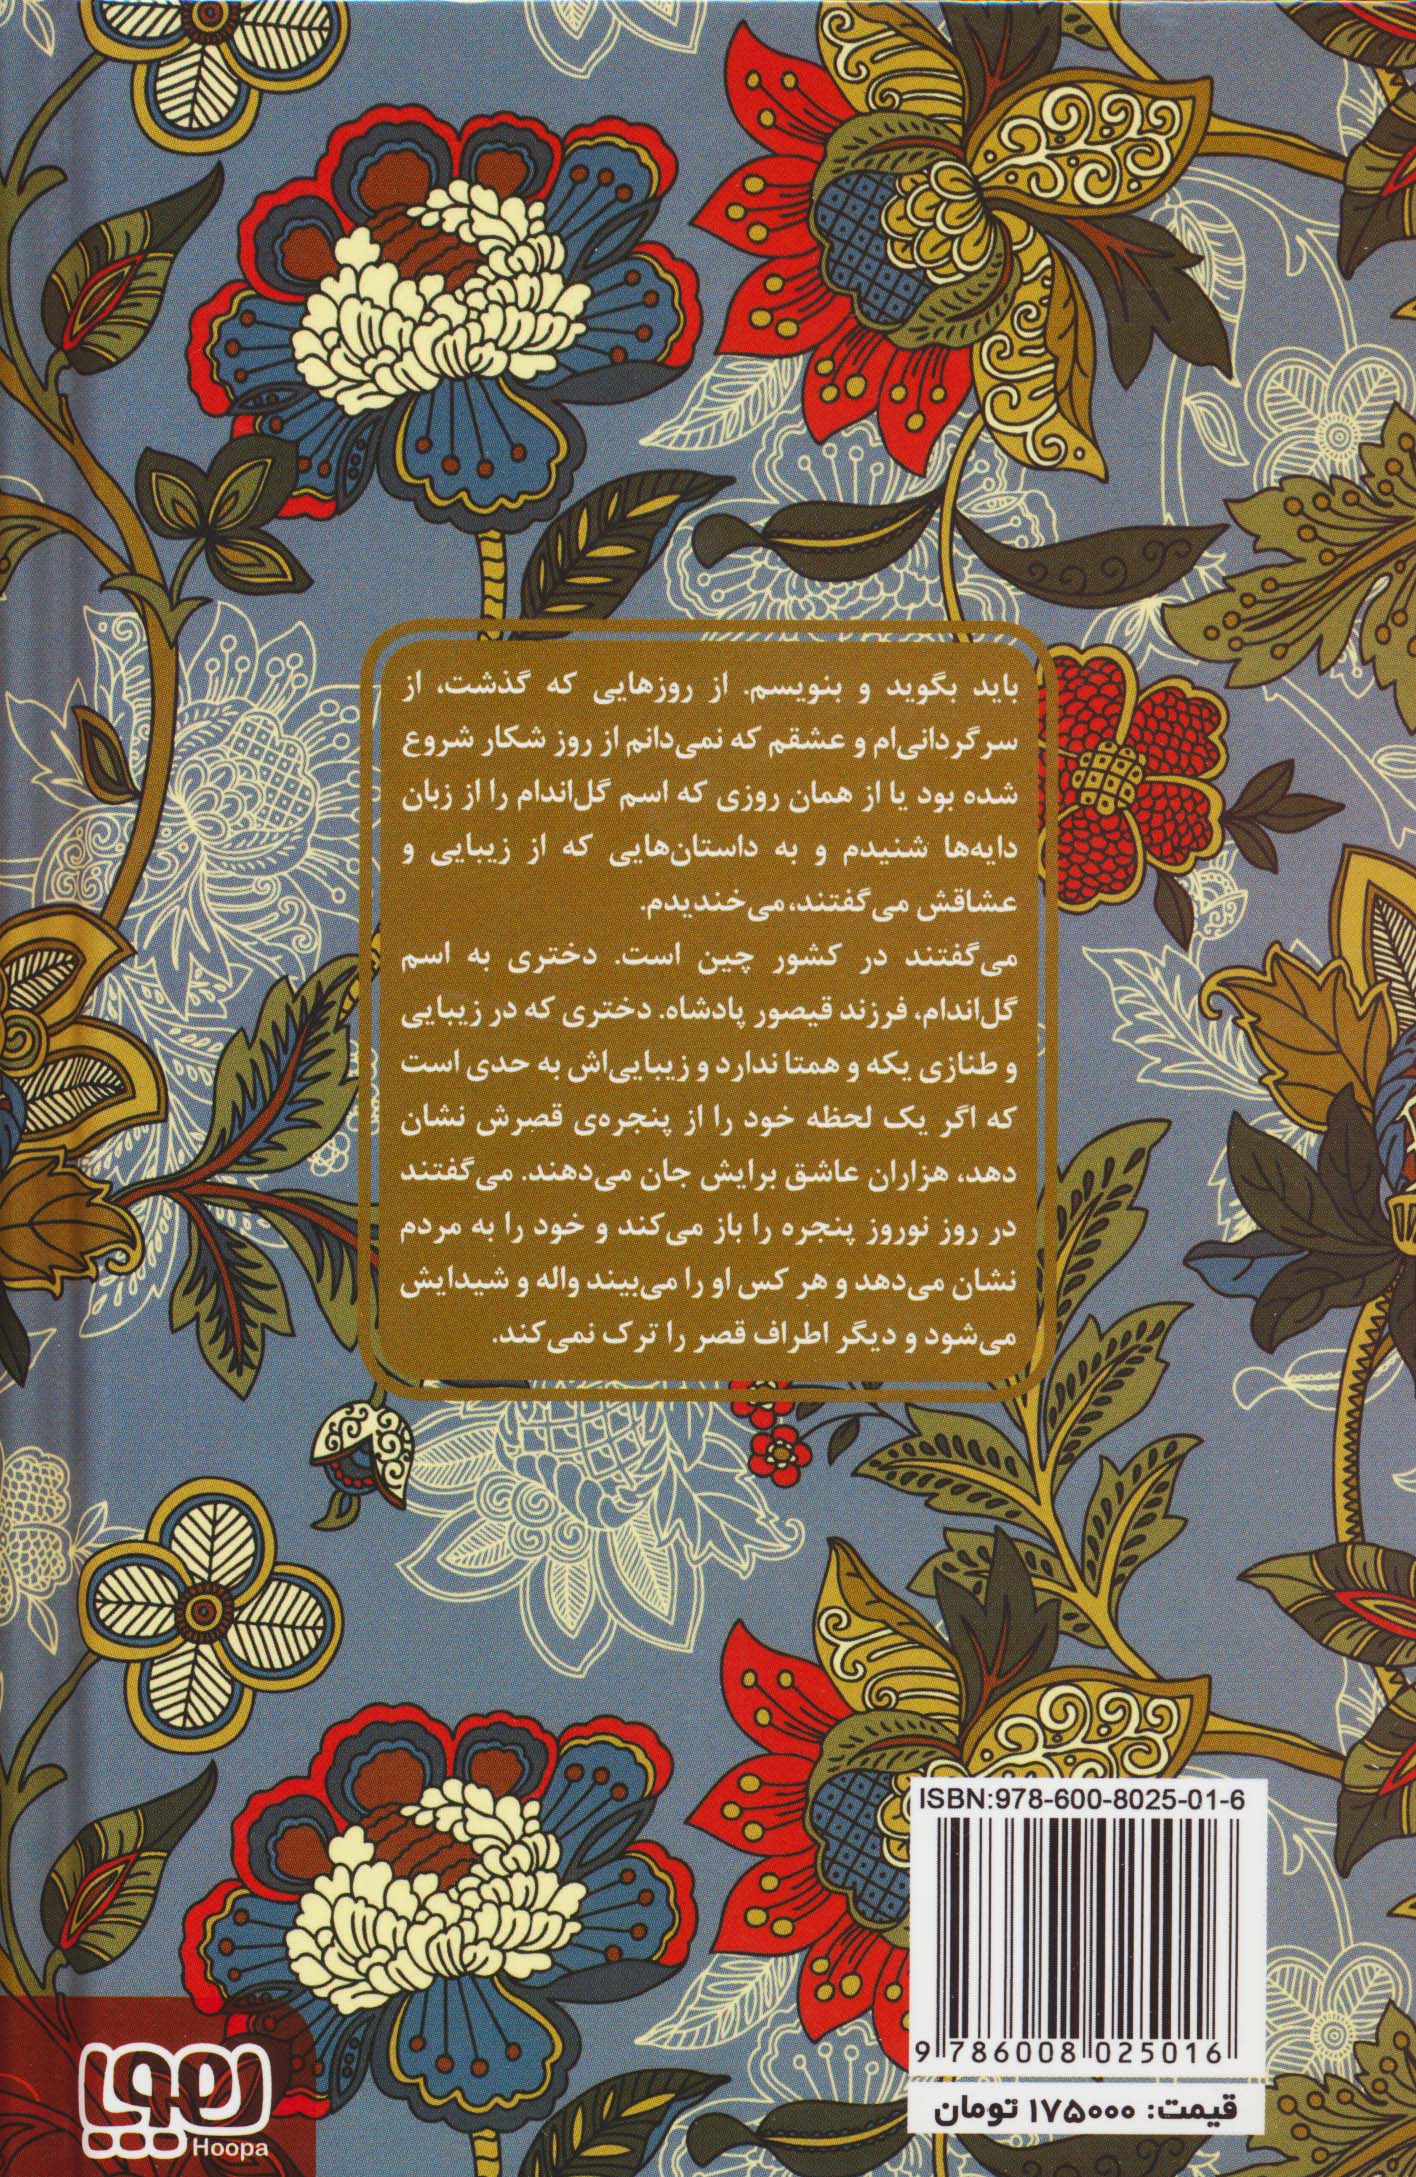 باید بگوید و بنویسم. از روزهایی که گذشت، از
سرگردانی‌ام و عشقم که نمی‌دانم از روز شکار شروع
شده بود یا از همان روزی که اسم گل‌اندام را از زبان
دایه‌ها شنیدم و به داستان‌هایی که از زیبایی و
عشاقش می‌گفتند، می‌خندیدم.
می‌گفتند در کشور چین است. دختری به اسم
گل‌اندام، فرزند قیصور پادشاه. دختری که در زیبایی
و طنازی یکه و همتا ندارد و زیبایی‌اش به حدی است
که اگر یک لحظه خود را از پنجره‌ی قصرش نشان
دهد، هزاران عاشق برایش جان می‌دهند. می‌گفتند
در روز نوروز پنجره را باز می‌کند و خود را به مردم
نشان می‌دهد و هر کس او را می‌بیند واله و شیدایش
می‌شود و دیگر اطراف قصر را ترک نمی‌کند.
ISBN:978-600-8025-01-6
9 786008 025016
قیمت: ۱۷۵۰۰۰ تومان
هوپا
Hoopa